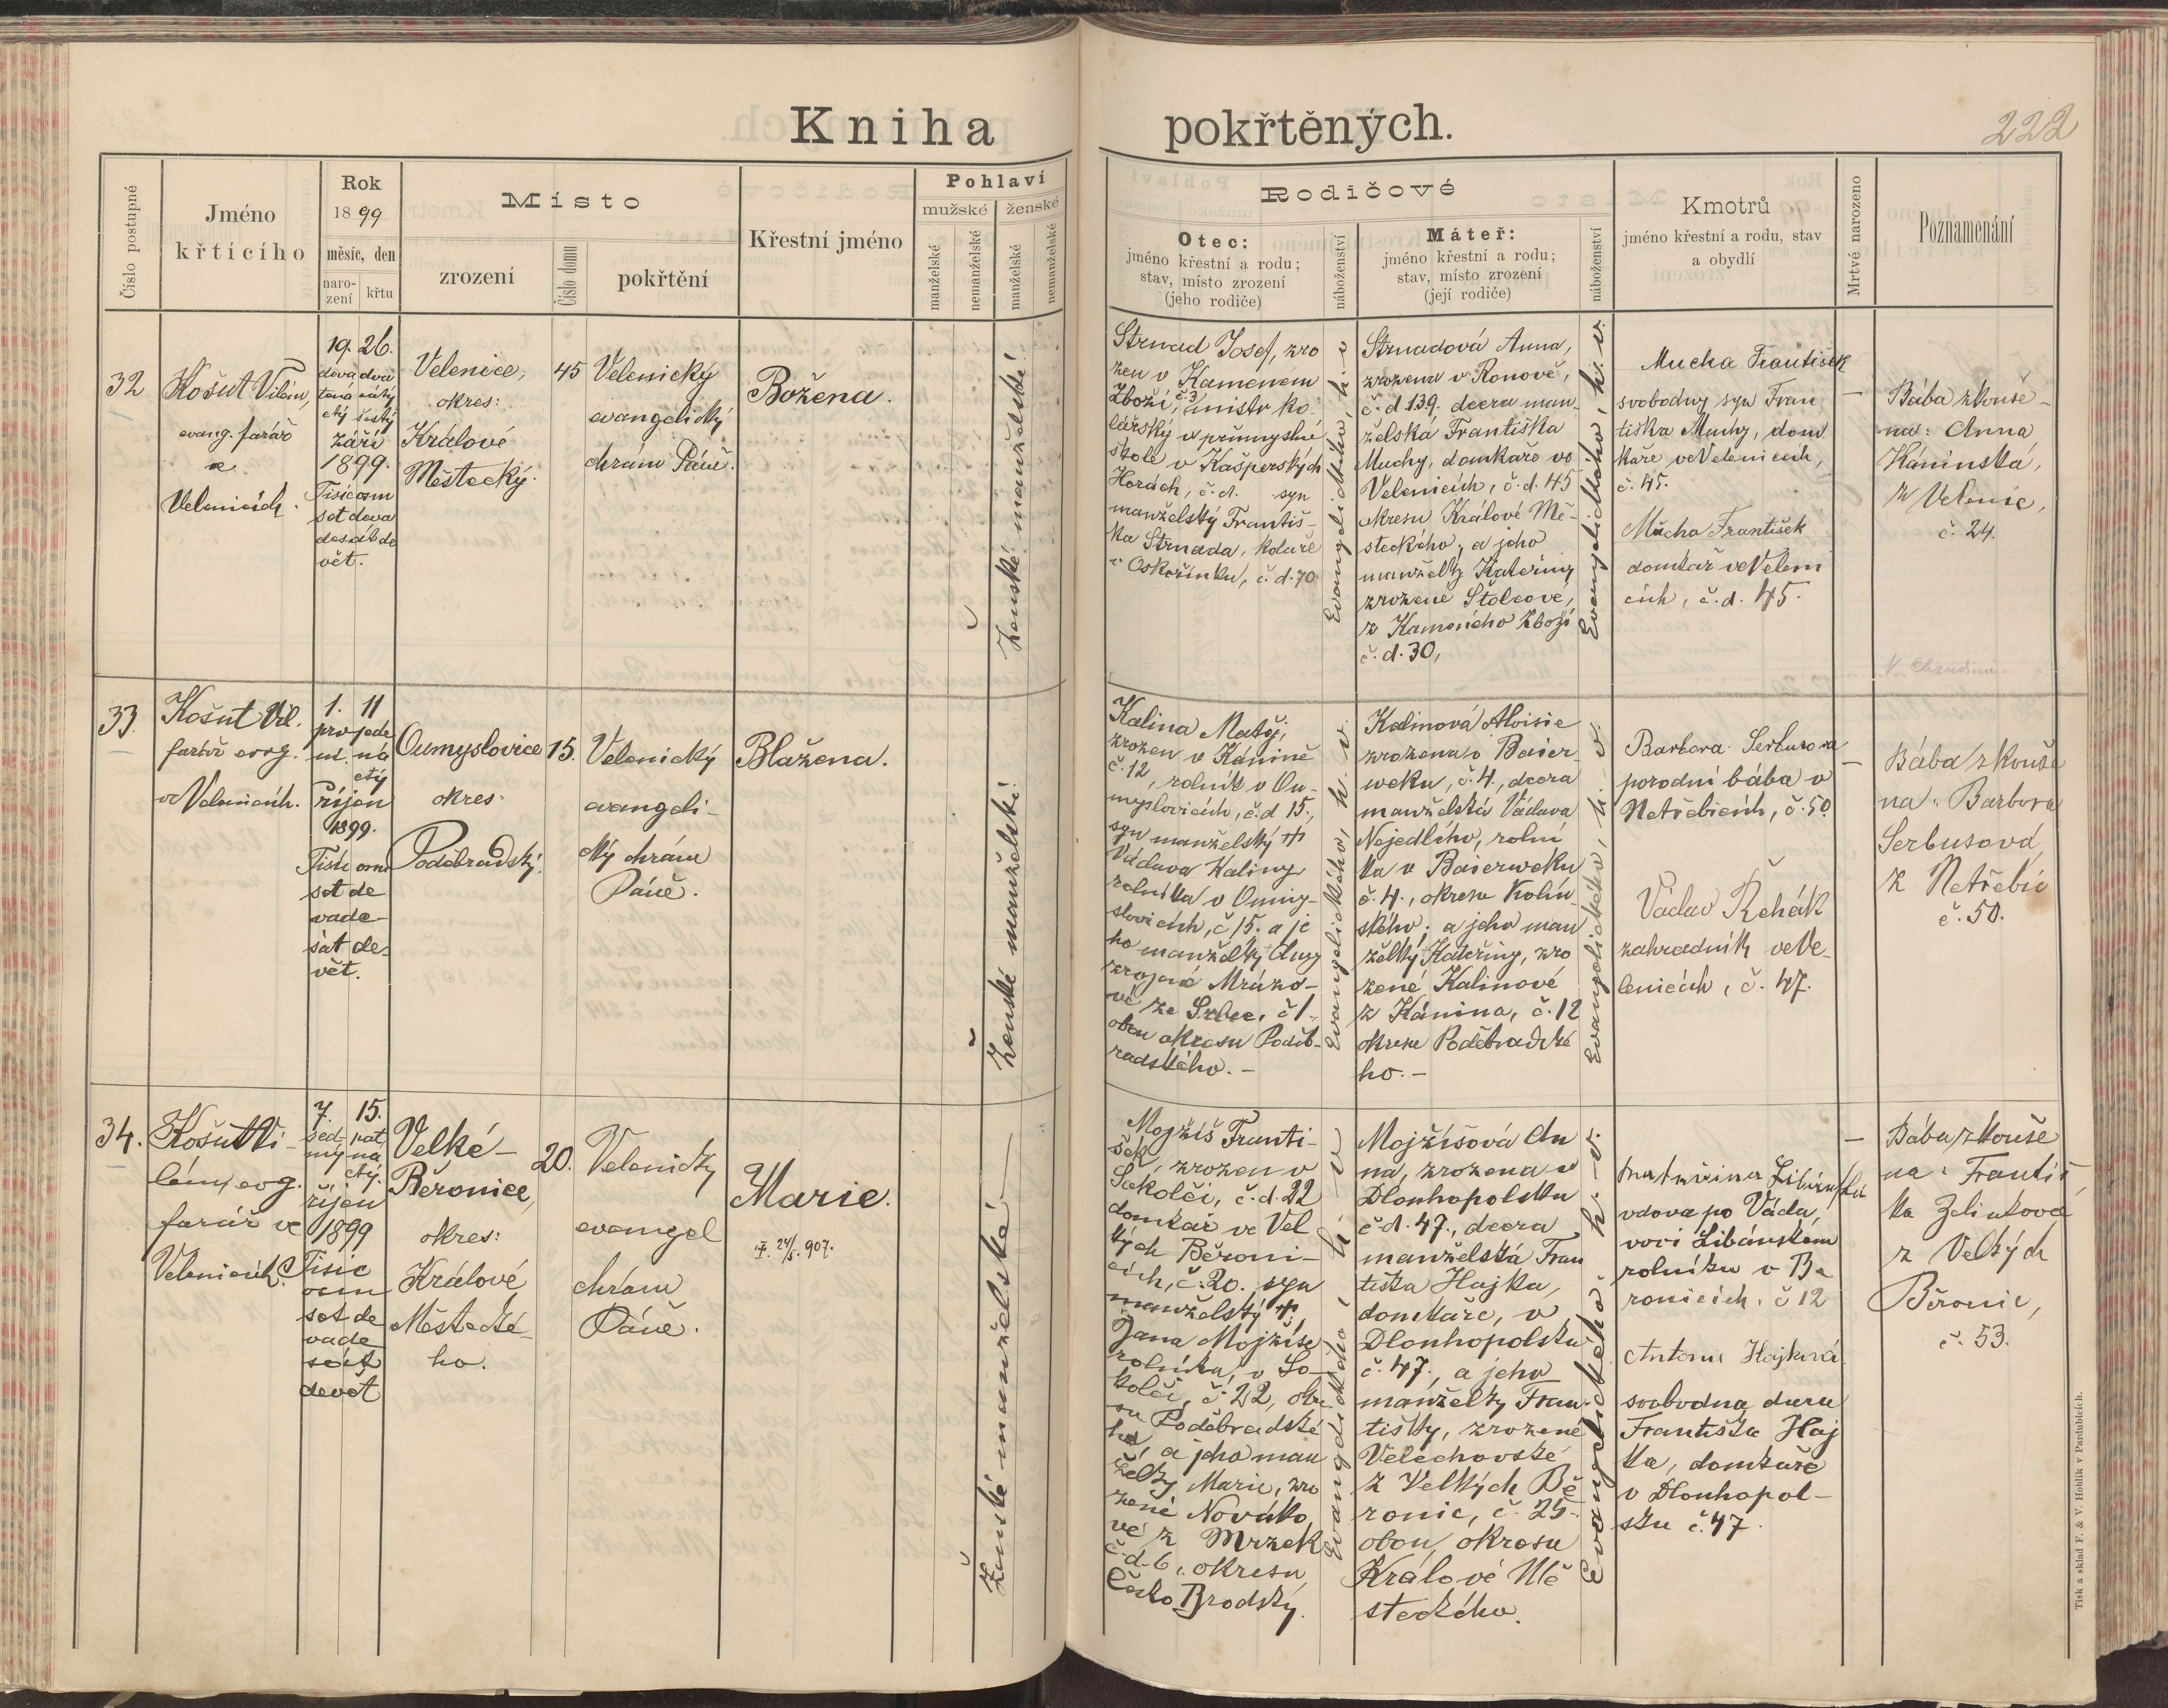 Kniha pokřtěných.
222
Číslo postupné
Jméno
křtícího
Rok
1899
měsíc, den
naro-
zení
křtu
Místo
zrození
Číslo domu
pokřtění
Křestní jméno
Pohlaví
mužské
ženské
manželské
nemanželské
manželské
nemanželské
Rodičové
Otec:
jméno křestní a rodu;
stav, místo zrození
(jeho rodiče)
náboženství
Máteř:
jméno křestní a rodu;
stav, místo zrození
(její rodiče)
náboženství
Kmotrů
jméno křestní a rodu, stav
a obydlí
Mrtvé narozeno
Poznamenání
32
Košut Vilém,
evang. farář
ve
Velenicích.
19. 26.
deva dva
tená cátý
ctý šestý
září
1899.
Tisíc osm
set deva
desát de
vět.
Velenice,
okres:
Králové
Městecký.
45
Velenický
evangelický
chrám Páně.
Božena.
Ženské manželské.
Strnad Josef, zro
zen v Kameném
Zboží, č. 3, mistr ko-
lářský v průmyslné
škole v Kašperských
Horách, č.d. syn
manželský Františ-
ka Strnada, koláře
v Oskořínku, č.d. 70
Evangelického, h. v.
Strnadová Anna,
zrozena v Ronově,
č.d 139. dcera man-
želská Františka
Muchy, domkáře ve
Velenicích, č.d. 45
okresu Králové Mě-
steckého, a jeho
manželky Kateřiny
zrozené Štolcové,
z Kamenného Zboží
č.d. 30,
Evangelického, h. v.
Mucha František
svobodný syn Fran
tiška Muchy, dom
káře ve Velenicích,
č. 45.
Mucha František
domkář ve Veleni
cích, č.d. 45.
—
Bába zkouše-
ná: Anna
Káninská,
z Velenic,
č. 24.
33.
Košut Vil.
farář evng.
ve Velenicích.
1. 11
prv jede
ní. ná
ctý
říjen
1899.
Tisíc osm
set de
vade-
sát de-
vět.
Oumyslovice
okres:
Poděbradský.
15.
Velenický
evangeli-
cký chrám
Páně.
Blažena.
Ženské manželské.
Kalina Matěj,
zrozen v Káníně
č. 12, rolník v Ou-
myslovicích, č.d 15.,
syn manželský †
Václava Kaliny
rolníka v Oumy-
slovicích, č 15. a je
ho manželky Anny
zrozené Mrázo-
vé ze Srbce, č 1.
obou okresu Poděb-
radského. —
Evangelického, h. v.
Kalinová Aloisie
zrozena v Baier-
weku, č. 4, dcera
manželská Václava
Nejedlého, rolní
ka v Baierweku
č. 4., okresu Kolín-
ského; a jeho man
želky Kateřiny, zro
zené Kalinové
z Kánína, č. 12
okresu Poděbradské
ho. —
Evangelického, h. v.
Barbora Serbusova
porodní bába v
Netřebicích, č. 50
Václav Řehák
zahradník ve Ve-
lenicích, č. 47.
—
Bába zkouše
ná: Barbora
Serbusová,
z Netřebic
č. 50.
34.
Košut Vi-
lém, evg.
farář ve
Velenicích.
7. 15.
sed- pat
mý ná
ctý.
říjen
1899
Tisíc
osm
set de
vade
sát
devět
Velké-
Běronice,
okres:
Králové
Městecké-
ho.
20.
Velenický
evangel
chrám
Páně.
Marie.
24/5. 907.
Ženské manželské —
Mojžíš Franti-
šek, zrozen v
Sokolči, č.d. 22
domkář ve Vel
kých Běroni-
cích, č. 20. syn
manželský †
Jana Mojžíše
rolníka, v So-
kolči, č. 22, okre
su Poděbradské
ho, a jeho man
želky Marie, zro
zené Nováko
vé z Mrzek
č.d. 6, okresu
Česko Brodský.
Evangelického, h. v.
Mojžíšová An
na, zrozena v
Dlouhopolsku
č.d. 47., dcera
manželská Fran
tiška Hajka,
domkáře, v
Dlouhopolsku
č. 47., a jeho
manželky Fran-
tišky, zrozené
Velechovské
z Velkých Bě
ronic, č. 25.
obou, okresu
Králové Mě
steckého.
Evangelického, h. v.
vdova po Václa
vovi Libánském
rolníku v Bě
ronicích, č 12
Antonie Hajková
svobodná dcera
Františka Haj
ka, domkáře
v Dlouhopol-
sku č. 47.
—
Bába zkouše
ná: Františ
ka Zelinková
z Velkých
Běronic,
č. 53.
Tisk a sklad F. & V. Hoblík v Pardubicích.